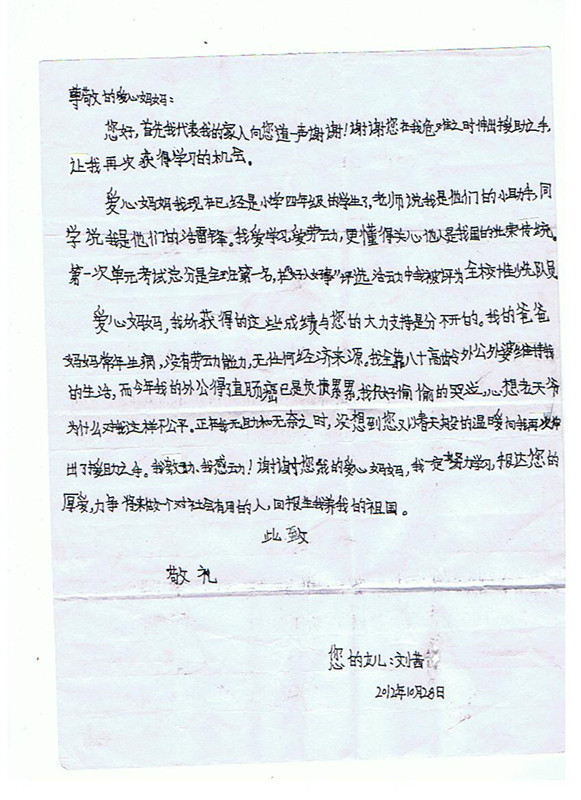 尊敬的爱心妈妈：
您好，首先我代表我的家人向您道一声谢谢！谢谢您在我危难之时伸出援助之手，
让我再次获得学习的机会。
爱心妈妈我现在已经是小学四年级的学生了，老师说我是他们的小助手，同
学说我是他们的活雷锋。我爱学习爱劳动，更懂得关心他人是我国的光荣传统。
第一次单元考试总分是全班第一名，好人好事评选活动中我被评为全校优秀少先队员
爱心妈妈，我所获得的这些成绩与您的大力支持是分不开的。我的爸爸
妈妈常年生病，没有劳动能力，无任何经济来源。我全靠八十高龄外公外婆维持我
的生活，而今年我的外公得直肠癌已是负债累累，我只好偷偷的哭泣，心想老天爷
为什么对我这样不公平。正在我无助和无奈之时，没想到您又以春天般的温暖向我再次伸
出了援助之手。我激动、我感动！谢谢您我的爱心妈妈，我一定努力学习，报达您的
厚爱，力争将来做个对社会有用的人，回报生我养我的祖国。
此致
敬礼
您的女儿：刘茜
2012年10月28日